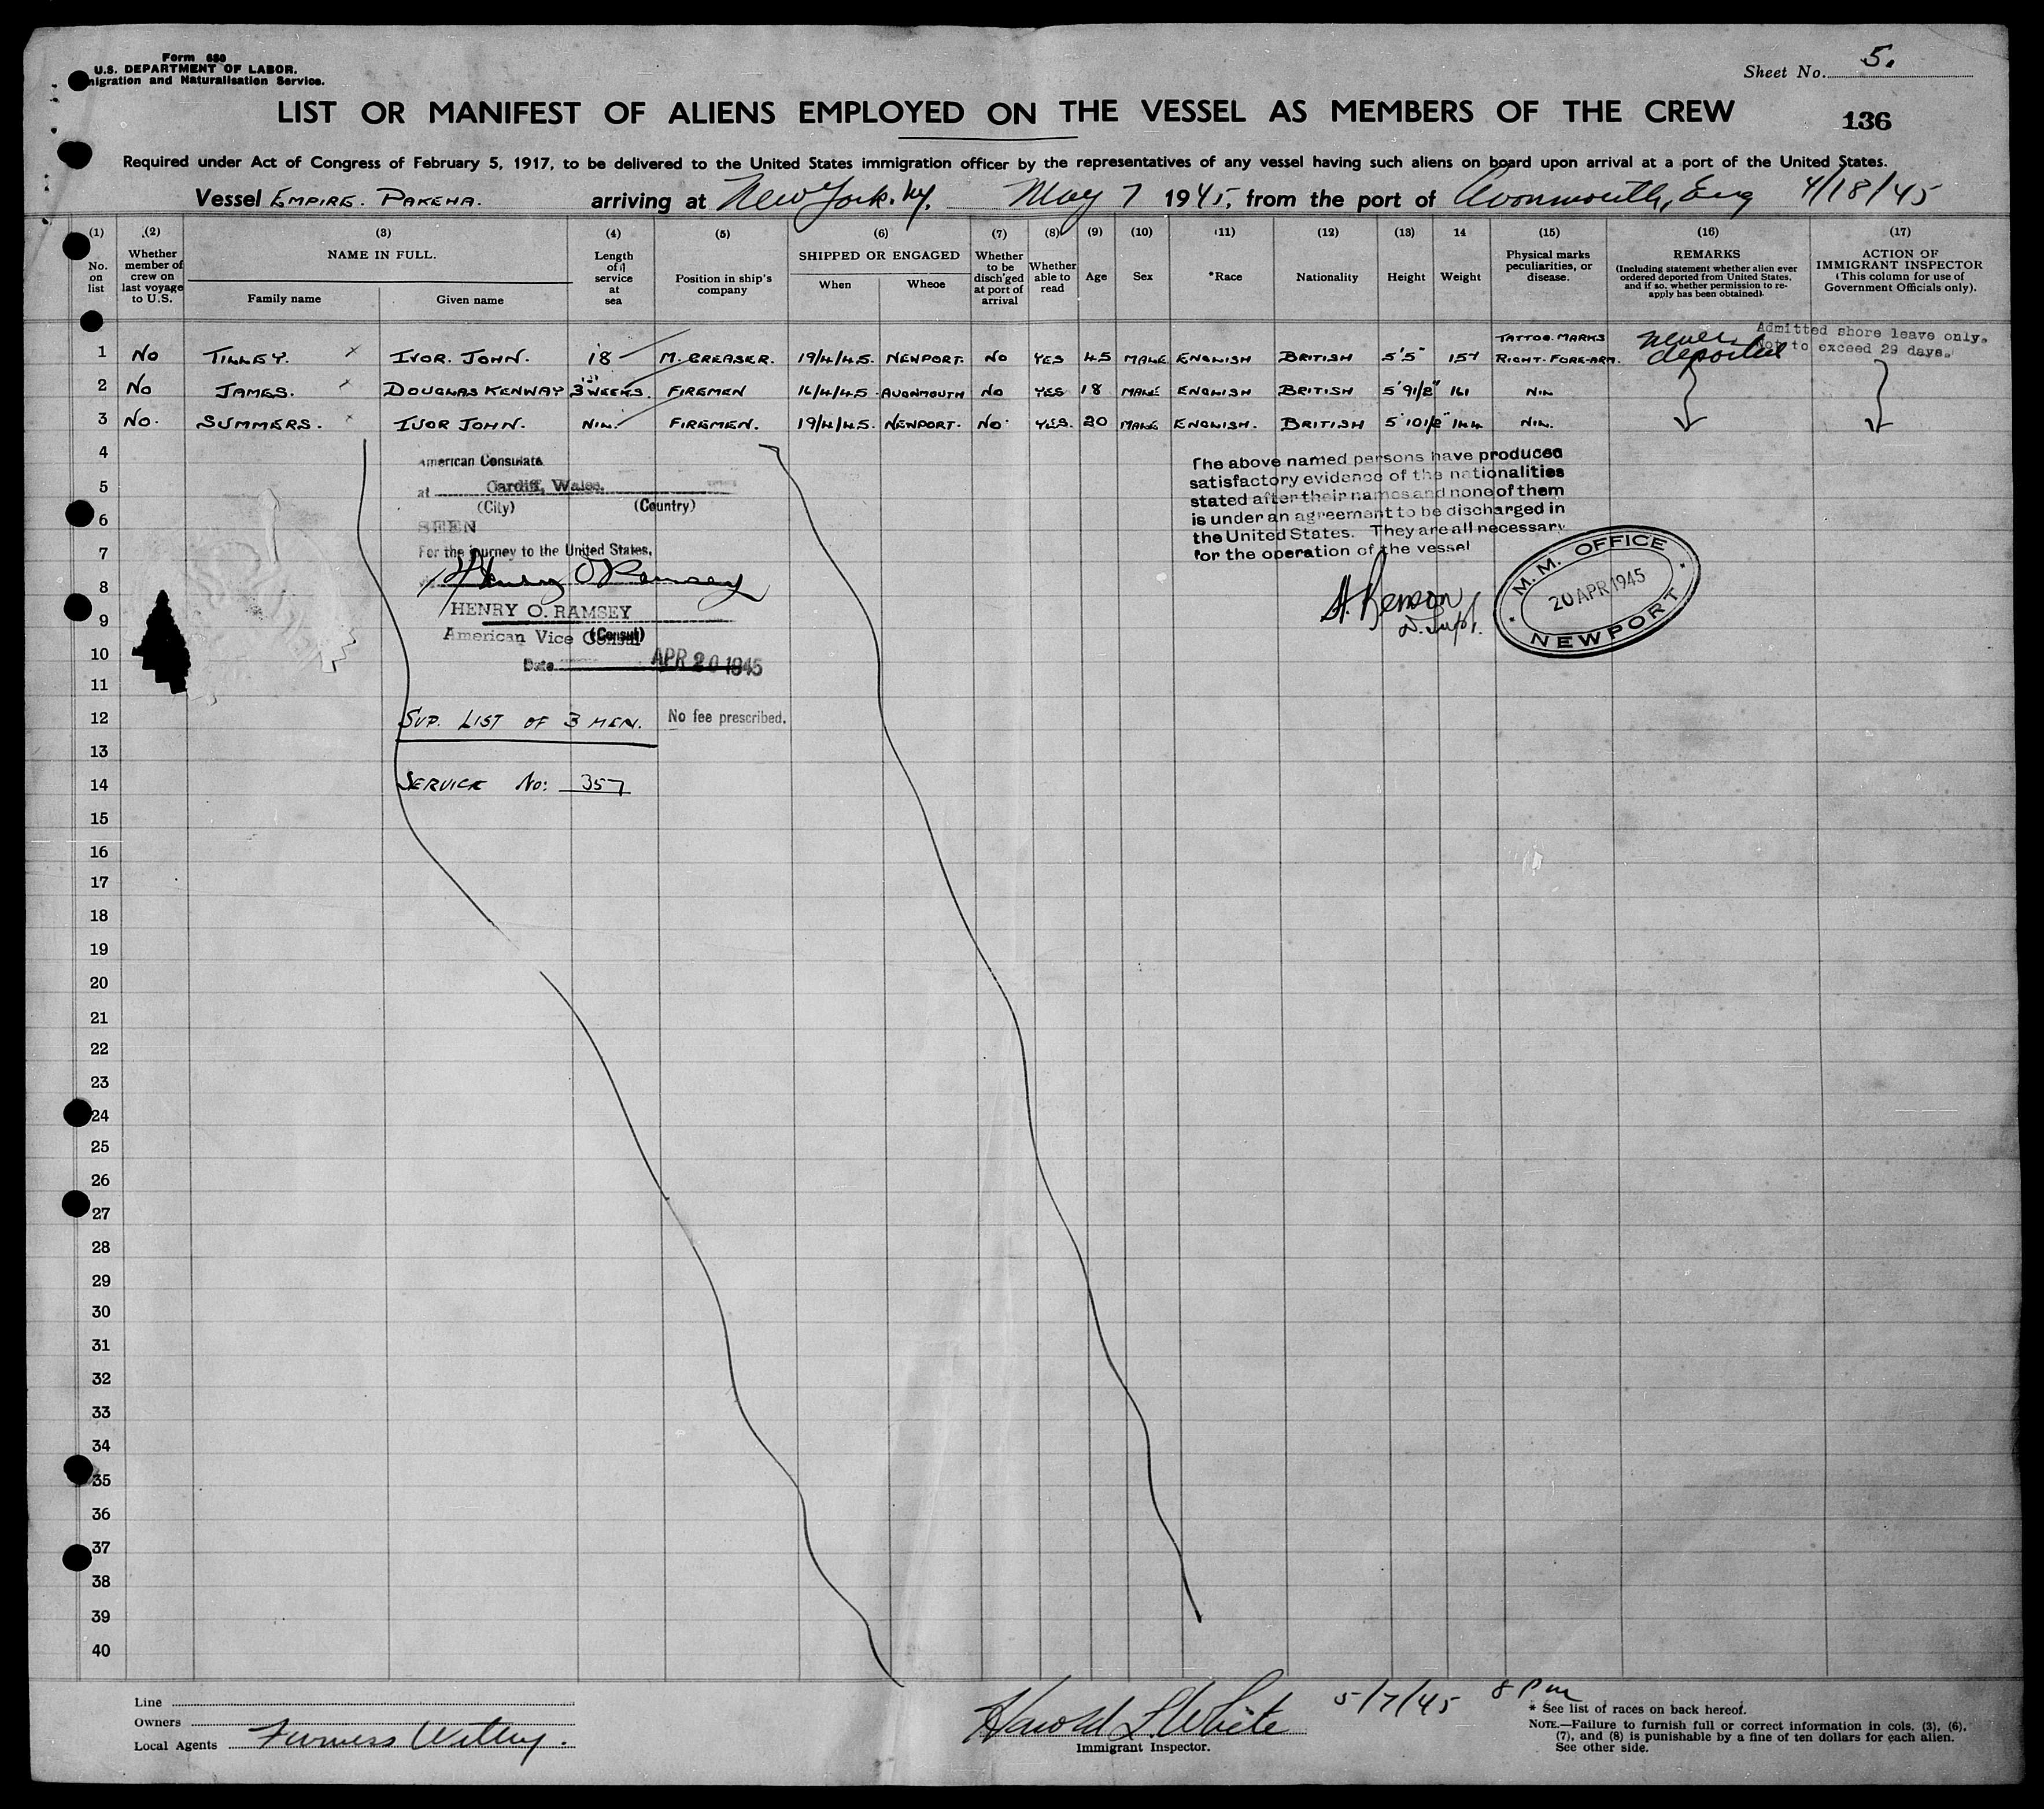 Form 680
U.S. DEPARTMENT OF LABOR.
migration and Naturalisation Service.
Sheet No. 5.
LIST OR MANIFEST OF ALIENS EMPLOYED ON THE VESSEL AS MEMBERS OF THE CREW
136
Required under Act of Congress of February 5, 1917, to be delivered to the United States immigration officer by the representatives of any vessel having such aliens on board upon arrival at a port of the United States.
Vessel EMPIRE. PAKEHA. arriving at New York. Ny. May 7 1945, from the port of Avonmouth, Eng 4/18/45
(1) (2) (3) (4) (5) (6) (7) (8) (9) (10) (11) (12) (13) 14 (15) (16) (17)
No. on list
Whether member of crew on last voyage to U.S.
NAME IN FULL.
Family name
Given name
Length of service at sea
Position in ship's company
SHIPPED OR ENGAGED
When
Wheoe
Whether to be disch'ged at port of arrival
Whether able to read
Age
Sex
*Race
Nationality
Height
Weight
Physical marks peculiarities, or disease.
REMARKS
(Including statement whether alien ever ordered deported from United States, and if so, whether permission to re-apply has been obtained).
ACTION OF IMMIGRANT INSPECTOR
(This column for use of Government Officials only).
1 No TILLEY. IVOR. JOHN. 18 M. GREASER. 19/4/45. NEWPORT. No YES 45 MALE ENGLISH BRITISH 5'5" 157 TATTOO. MARKS RIGHT. FORE-ARM. never deported Admitted shore leave only. Not to exceed 29 days.
2 No JAMES. DOUGLAS KENWAY 3 WEEKS. FIREMEN 16/4/45 AVONMOUTH No YES 18 MALE ENGLISH BRITISH 5'9 1/2" 161 NIL
3 No. SUMMERS. IVOR JOHN. NIL. FIREMEN. 19/4/45. NEWPORT. No YES. 20 MALE ENGLISH. BRITISH 5'10 1/2" 144 NIL.
4
5
6
7
8
9
10
11
12
13
14
15
16
17
18
19
20
21
22
23
24
25
26
27
28
29
30
31
32
33
34
35
36
37
38
39
40
American Consulate
at Cardiff, Wales.
(City) (Country)
SEEN
For the journey to the United States,
Henry O Ramsey
HENRY O. RAMSEY
American Vice Consul
(Consul)
Date APR 20 1945
SUP. LIST OF 3 MEN. No fee prescribed.
SERVICE No: 357
The above named persons have produced
satisfactory evidence of the nationalities
stated after their names and none of them
is under an agreement to be discharged in
the United States. They are all necessary
for the operation of the vessel
M. M. OFFICE
20 APR 1945
NEWPORT
Line
Owners
Local Agents Furness Withy.
Harold L White 5/7/45 8 Pm
Immigrant Inspector.
* See list of races on back hereof.
NOTE.—Failure to furnish full or correct information in cols. (3), (6),
(7), and (8) is punishable by a fine of ten dollars for each alien.
See other side.